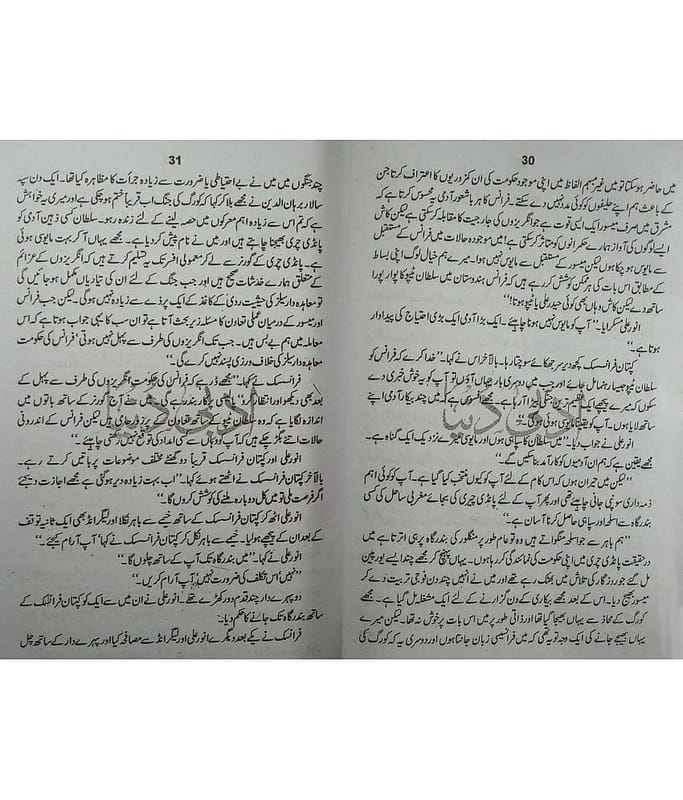 30
میں حاضر ہو سکتا تو میں غیر مبہم الفاظ میں اپنی موجود حکومت کی ان کمزوریوں کا اعتراف کرتا جن
کے باعث ہم اپنے حلیفوں کو کوئی مدد نہیں دے سکتے۔ فرانس کا ہر باشعور آدمی یہ محسوس کرتا ہے کہ
مشرق میں صرف میسور ایک ایسی قوت ہے جو انگریزوں کی جارحیت کا مقابلہ کر سکتی ہے لیکن کاش
ایسے لوگوں کی آواز ہمارے حکمرانوں کو متاثر کر سکتی! میں موجودہ حالات میں فرانس کے مستقبل
سے مایوس ہو چکا ہوں لیکن میسور کے مستقبل سے مایوس نہیں ہوا۔ میرے ہم خیال لوگ اپنی بساط
کے مطابق اس بات کی ہر ممکن کوشش کر رہے ہیں کہ فرانس ہندوستان میں سلطان ٹیپو کا پورا پورا
ساتھ دے لیکن کاش وہاں بھی کوئی حیدر علی یا ٹیپو ہوتا!''
انور علی مسکرایا۔ ''آپ کو مایوس نہیں ہونا چاہیئے۔ ایک بڑا آدمی ایک بڑی احتیاج کی پیداوار
ہوتا ہے۔''
کپتان فرانسک کچھ دیر سر جھکائے سوچتا رہا۔ بالآخر اس نے کہا۔ ''خدا کرے کہ فرانس کو
سلطان ٹیپو جیسا رہنما مل جائے اور جب میں دوسری بار یہاں آؤں تو آپ کو یہ خوش خبری دے
سکوں کہ میرے پیچھے ایک بہترین جنگی بیڑا آ رہا ہے۔ مجھے افسوس ہے کہ میں چند بیکار آدمی اپنے
ساتھ لایا ہوں۔ آپ کو یقیناً مایوسی ہوئی ہوگی۔''
انور علی نے جواب دیا۔ ''میں سلطان کا سپاہی ہوں اور مایوسی میرے نزدیک ایک گناہ ہے۔
مجھے یقین ہے کہ ہم ان آدمیوں کو کارآمد بنا سکیں گے۔''
''لیکن میں حیران ہوں کہ اس کام کے لئے آپ کو کیوں منتخب کیا گیا ہے۔ آپ کو کوئی اہم
ذمہ داری سونپی جانی چاہیئے تھی اور پھر آپ کے لئے پانڈی چری کی بجائے مغربی ساحل کی کسی
بندرگاہ سے اسلحہ اور سپاہی حاصل کرنا آسان ہے۔''
''ہم باہر سے جو اسلحہ منگواتے ہیں وہ تو عام طور پر منگلور کی بندرگاہ پر ہی اترتا ہے میں
درحقیقت پانڈی چری میں اپنی حکومت کی نمائندگی کر رہا ہوں۔ یہاں پہنچ کر مجھے چند ایسے یورپین
مل گئے جو روزگار کی تلاش میں بھٹک رہے تھے اور میں نے انہیں چند دن فوجی تربیت دے کر
میسور بھیج دیا۔ اس کے بعد مجھے بیکاری کے دن گزارنے کے لئے ایک مشغلہ مل گیا ہے۔ مجھے
کورگ کے محاذ سے یہاں بھیجا گیا تھا اور ذاتی طور پر میں اس بات پر خوش نہ تھا۔ لیکن میرے
یہاں بھیجے جانے کی ایک وجہ تو یہ تھی کہ میں فرانسیسی زبان جانتا ہوں اور دوسری یہ کہ کورگ کی
31
چند جنگوں میں میں نے بے احتیاطی یا ضرورت سے زیادہ جرأت کا مظاہرہ کیا تھا۔ ایک دن سپہ
سالار برہان الدین نے مجھے بلا کر کہا کہ کورگ کی جنگ اب قریباً ختم ہو چکی ہے اور میری یہ خواہش
ہے کہ تم اس سے زیادہ اہم معرکوں میں حصہ لینے کے لئے زندہ رہو۔ سلطان کسی ذہین آدمی کو
پانڈی چری بھیجنا چاہتے ہیں اور میں نے تمہارا نام پیش کر دیا ہے۔ مجھے یہاں آ کر بہت مایوسی ہوئی
ہے۔ پانڈی چری کے گورنر سے لے کر معمولی افسر تک یہ تسلیم کرتے ہیں کہ انگریزوں کے عزائم
کے متعلق ہمارے خدشات صحیح ہیں اور جب جنگ کے لئے ان کی تیاریاں مکمل ہو جائیں گی
تو معاہدہ وارسیلز کی حیثیت ردی کے کاغذ کے ایک پرزے سے زیادہ نہیں ہو گی۔ لیکن جب فرانس
اور میسور کے درمیان عملی تعاون کا مسئلہ زیر بحث آتا ہے تو ان سب کا یہی جواب ہوتا ہے کہ اس
معاملہ میں ہم بے بس ہیں۔ جب تک انگریزوں کی طرف سے پہل نہیں ہوتی' فرانس کی حکومت
معاہدہ وارسیلز کی خلاف ورزی پسند نہیں کرے گی۔''
فرانسک نے کہا۔ ''مجھے ڈر ہے کہ فرانس کی حکومت انگریزوں کی طرف سے پہل کے
بعد بھی دیکھو اور انتظار کرو کی پالیسی پر کاربند رہے گی۔ میں نے آج گورنر کے ساتھ باتوں میں
اندازہ لگایا ہے کہ وہ سلطان ٹیپو کے ساتھ تعاون کے پر زور حامی ہیں لیکن فرانس کے اندرونی
حالات اتنے بگڑ چکے ہیں کہ آپ کو وہاں سے کسی امداد کی توقع نہیں رکھنی چاہیئے۔''
انور علی اور کپتان فرانسک قریباً دو گھنٹے مختلف موضوعات پر باتیں کرتے رہے۔
بالآخر کپتان فرانسک نے اٹھتے ہوئے کہا۔ ''اب بہت زیادہ دیر ہو گئی ہے مجھے اجازت دیجئے
اگر فرصت ملی تو میں کل دوبارہ ملنے کی کوشش کروں گا۔''
انور علی اٹھ کر کپتان فرانسک کے ساتھ خیمے سے باہر نکلا اور لیگرانڈ بھی ایک ثانیہ توقف
کے بعد ان کے پیچھے ہو لیا۔ خیمے سے باہر نکل کر کپتان فرانسک نے کہا ''آپ آرام کیجئے۔''
انور علی نے کہا۔ ''میں بندرگاہ تک آپ کے ساتھ چلوں گا۔''
''نہیں اس تکلف کی ضرورت نہیں، آپ آرام کریں۔''
دو پہرے دار چند قدم دور کھڑے تھے۔ انور علی نے ان میں سے ایک کو کپتان فرانسک کے
ساتھ بندرگاہ تک جانے کا حکم دیا۔
فرانسک نے یکے بعد دیگرے انور علی اور لیگرانڈ سے مصافحہ کیا اور پہرے دار کے ساتھ چل
ادبی دنیا
ادبی دنیا